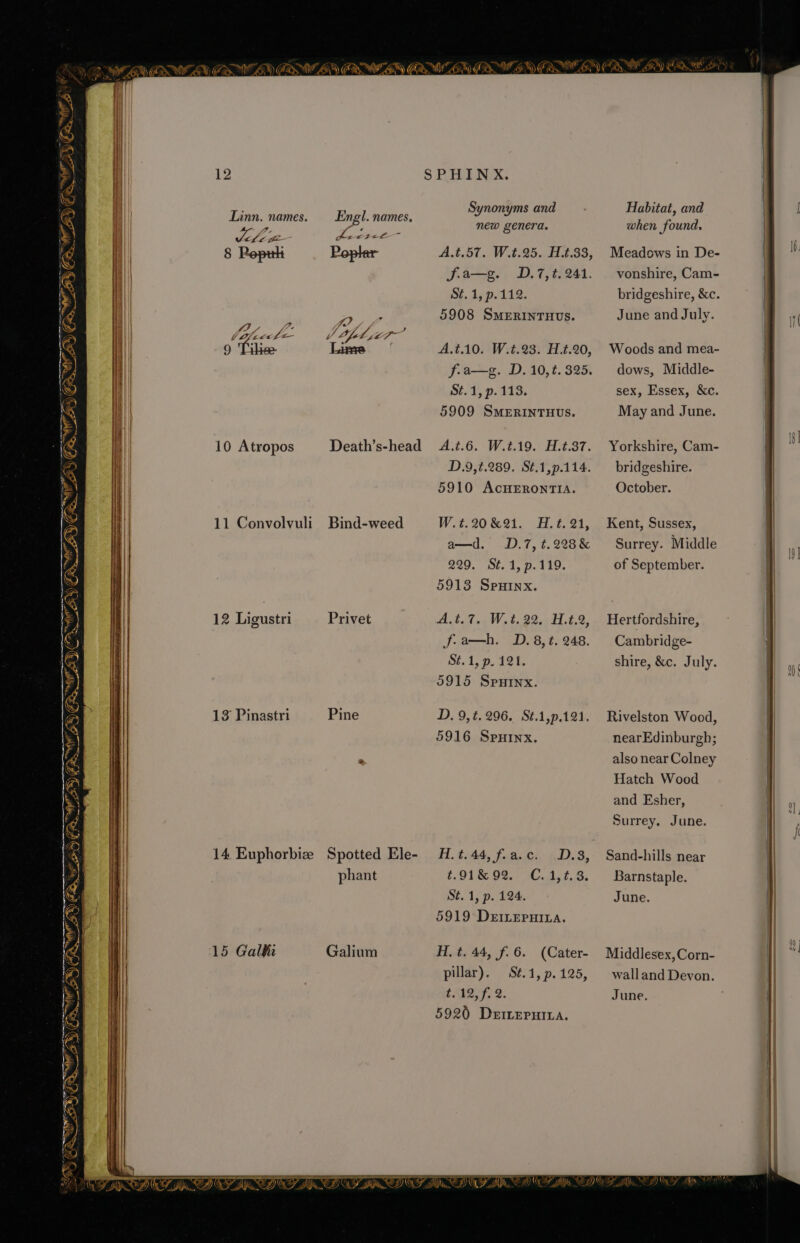 12 SPHINX.
Linn. names. Engl. names. Synonyms and new genera. Habitat, and when found.
8 Populi Poplar A.t.57. W.t.25. H.t.33, Meadows in De-
f.a—g. D.7,t.241. vonshire, Cam-
St. 1, p.112. bridgeshire, &c.
5908 SMERINTHUS. June and July.
Poplar
9 Tiliæ Lime A.t.10. W.t.23. H.t.20, Woods and mea-
f.a—g. D. 10,t. 325. dows, Middle-
St. 1, p. 113. sex, Essex, &c.
5909 SMERINTHUS. May and June.
10 Atropos Death's-head A.t.6. W.t.19. H.t.37. Yorkshire, Cam-
D.9,t.289. St.1,p.114. bridgeshire.
5910 ACHERONTIA. October.
11 Convolvuli Bind-weed W. t. 20 & 21. H. t. 21, Kent, Sussex,
a—d. D.7, t. 228 & Surrey. Middle
229. St. 1, p. 119. of September.
5913 SPHINX.
12 Ligustri Privet A.t. 7. W.t. 22. H.t.2, Hertfordshire,
f. a—h. D. 8, t. 248. Cambridge-
St. 1, p. 121. shire, &c. July.
5915 SPHINX.
13 Pinastri Pine D. 9, t. 296. St.1,p.121. Rivelston Wood,
5916 SPHINX. near Edinburgh;
also near Colney
Hatch Wood
and Esher,
Surrey. June.
14 Euphorbiæ Spotted Ele- H. t. 44, f. a. c. D. 3, Sand-hills near
phant t. 91 & 92. C. 1, t. 3. Barnstaple.
St. 1, p. 124. June.
5919 DEILEPHILA.
15 Galii Galium H. t. 44, f. 6. (Cater- Middlesex, Corn-
pillar). St. 1, p. 125, wall and Devon.
t. 12, f. 2. June.
5920 DEILEPHILA.